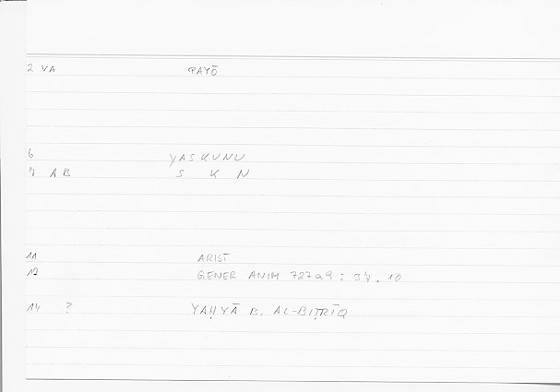 2 VA PAYŌ
6 YASKUNU
7 AB S K N
11 ARIST
12 GENER ANIM 727a9 : 37.10
14 ? YAḤYĀ B. AL-BIṬRĪQ